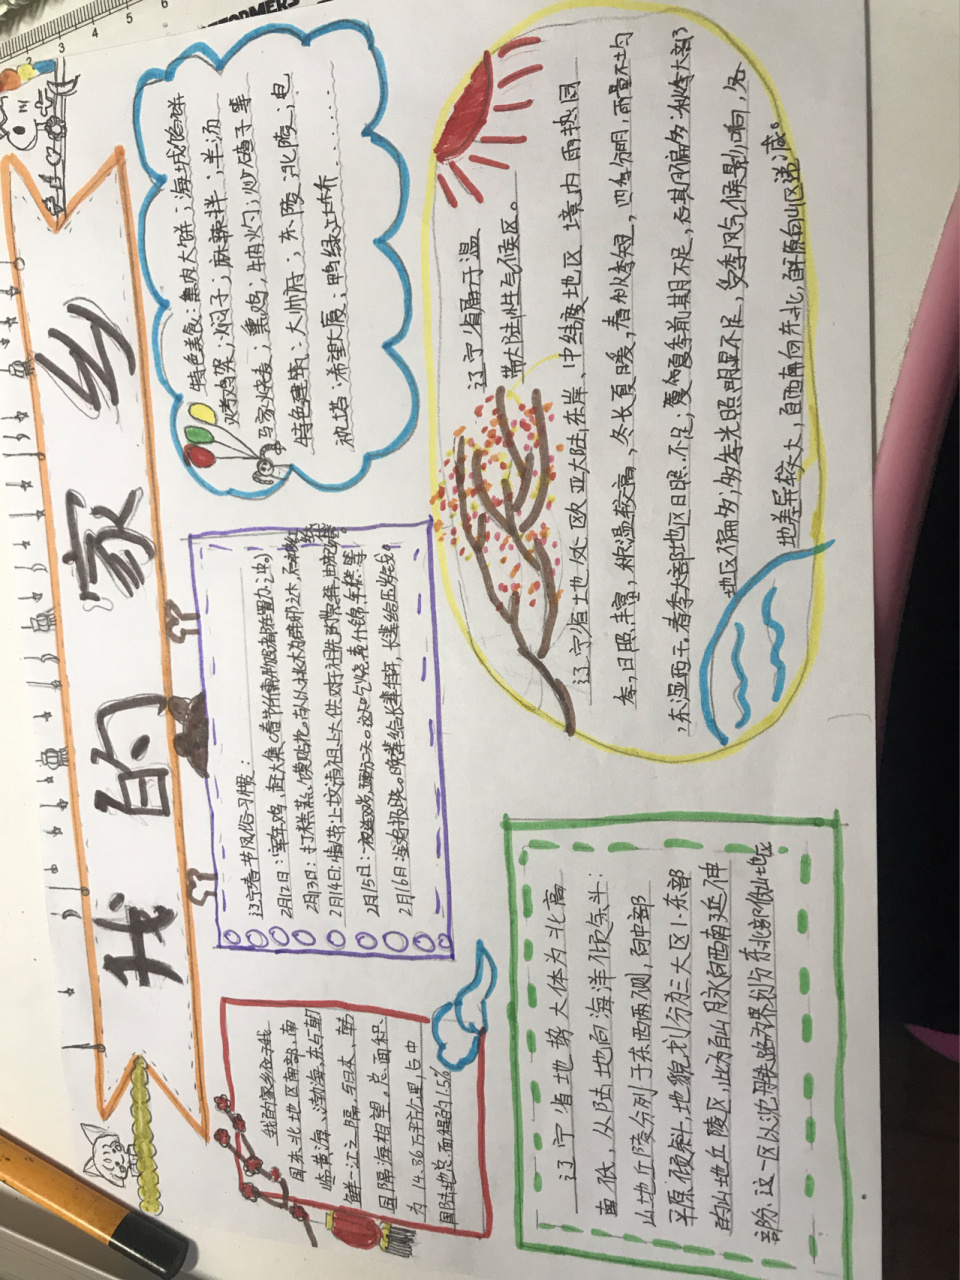 我的家乡
我的家乡位于我
国东北地区南部、南
临黄海、渤海、东与朝
鲜一江之隔,与日本、韩
国隔海相望。总面积
为14.86万平方公里,占中
国陆地总面积的1.5%
辽宁春节风俗习惯:
2月12日:宰年鸡、赶大集
2月13日:打糕蒸馍贴花
2月14日:
2月15日:
2月16日:
特色美食:熏肉大饼;海城馅饼
烤鸡架;焖子;麻辣拌;羊汤
马家烧麦;熏鸡;炒火碴子等
特色建筑:大帅府;东陵;北陵;电
视塔;希望大厦;鸭绿江大桥……
辽宁省地势大体为北高
南低,从陆地向海洋倾斜:
山地丘陵分列于东西两侧,向中部
平原倾斜,地貌划分为三大区1.东部
的山地丘陵区,此为白山脉向西南延伸
部分这一区以沈丹铁路为界划分东北部低山地区
辽宁省属于温
带大陆性气候区。
辽宁省地处欧亚大陆东岸、中纬度地区境内雨热同
季,日照丰富,积温较高,冬长夏暖,春秋季短,四季分明,雨量不均
,东湿西干。春季大部地区日照不足;夏季前期不足,后期偏多;秋季大部
地区偏多;冬季光照明显不足,受季风气候影响,各
地差异较大,自西南向东北,自平原向山区递减。